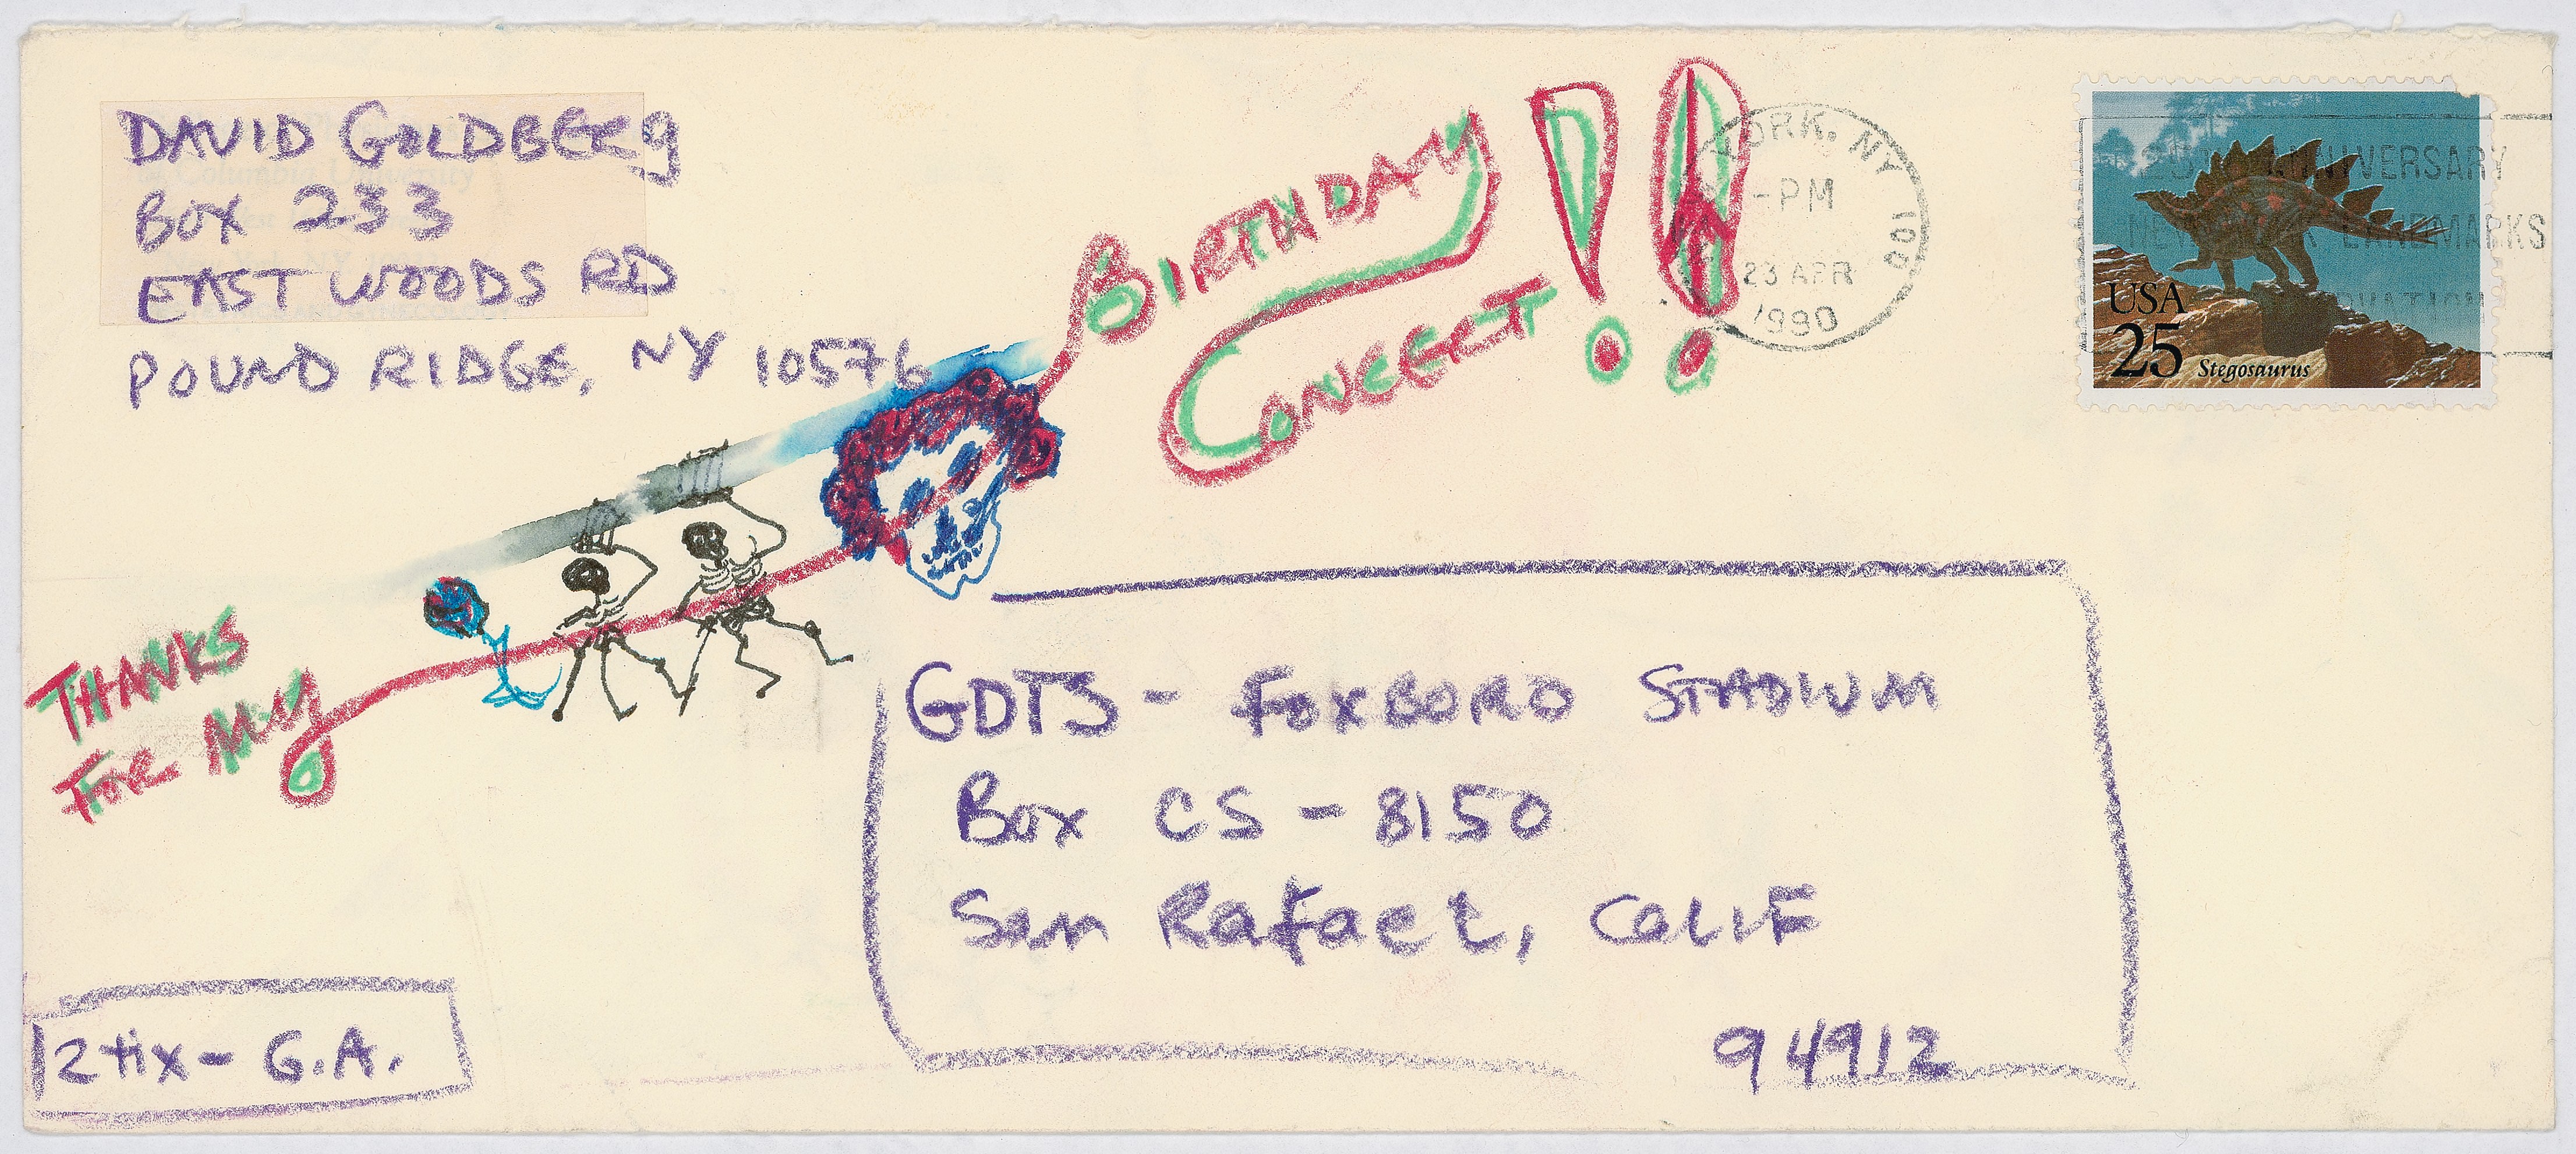 DAVID GOLDBERG
BOX 233
EAST WOODS RD
POUND RIDGE, NY 10576
THANKS
FOR MY
BIRTHDAY
CONCERT!!
YORK, NY 1001
-PM
23 APR
1990
ANNIVERSARY
LANDMARKS
USA
25 Stegosaurus
GDTS - FOXBORO STADIUM
Box CS - 8150
San Rafael, CALIF
94912
2 tix - G.A.